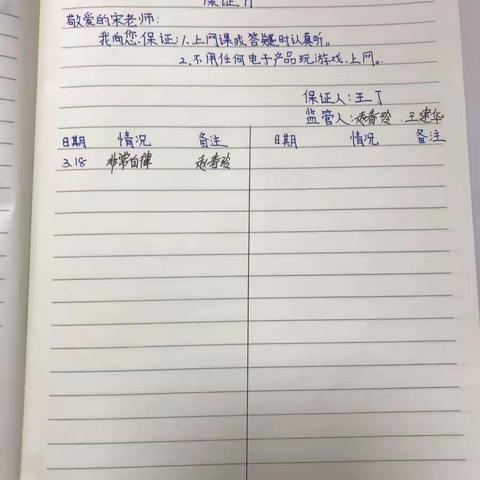 保证书
敬爱的宋老师:
我向您保证:1.上网课或答疑时认真听。
2.不用任何电子产品玩游戏、上网。
保证人:王丁
监管人:赵春玲、王建华
日期 情况 备注 日期 情况 备注
3.18 非常自律 赵春玲